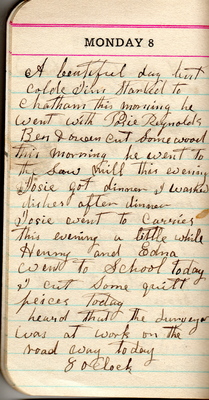 MONDAY 8
A beautiful day but
colde Jim Started to
Chatham this morning he
went with Posie Reynolds
Ben & owen cut Some wood
this morning he went to
the Saw Mill this evening
Josie got dinner I washed
dishes after dinner
Josie went to Carries
this evening a little while
Henny and Edna
went to School today
I cut Some quilt
peices today
heard that the Surveyor
was at work on the
road way today
8 oClock